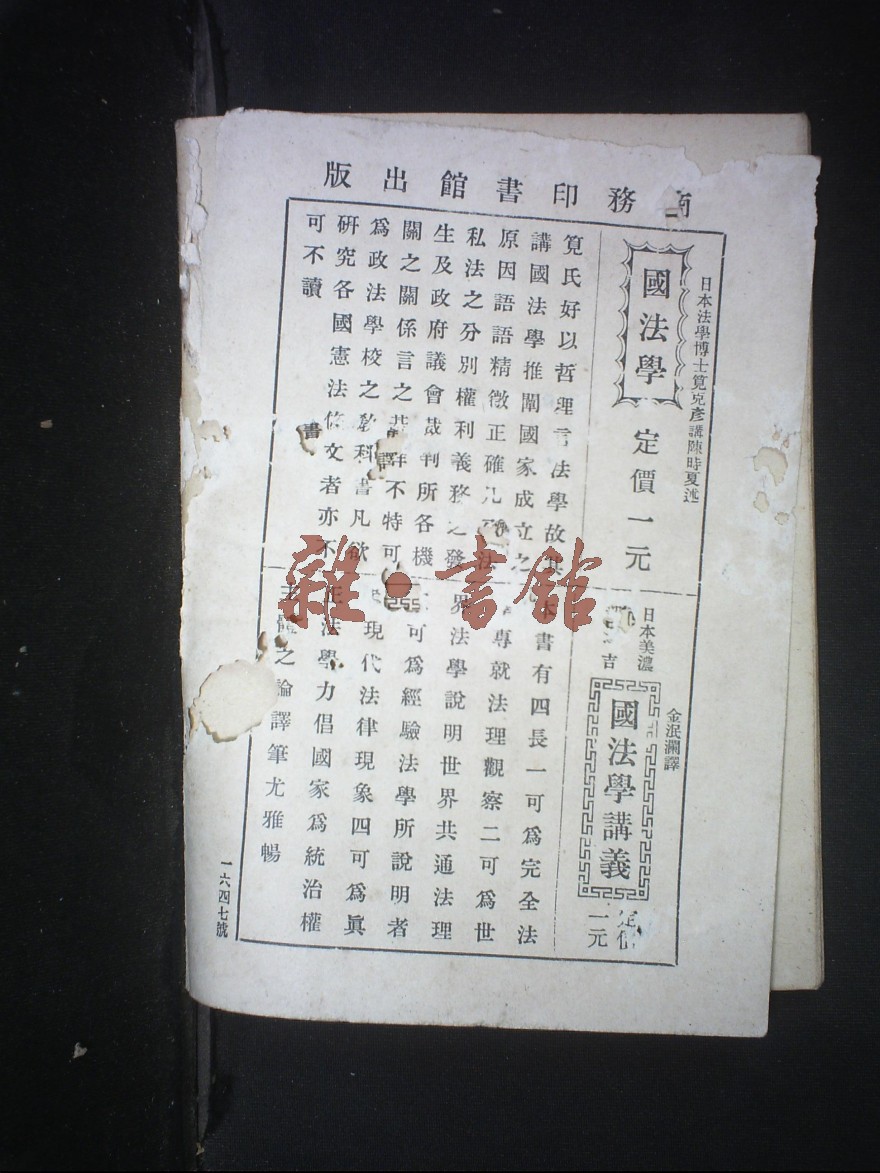 商務印書館出版
日本法學博士筧克彥講陳時夏述
國法學
定價一元
筧氏好以哲理言法學故其
講國法學推闡國家成立之
原因語語精徵正確凡
私法之分別權利義務之發
生及政府議會裁判所各機
關之關係言之 不特可
為政法學校之教科書凡欲
研究各國憲法條文者亦不
可不讀
日本美濃 吉
金泯瀾譯
國法學講義
定價一元
本書有四長一可為完全法
專就法理觀察二可為世
界法學說明世界共通法理
可為經驗法學所說明者
現代法律現象四可為眞
正法學力倡國家為統治權
主體之論譯筆尤雅暢
一六四七號
譯
書
雜·書館